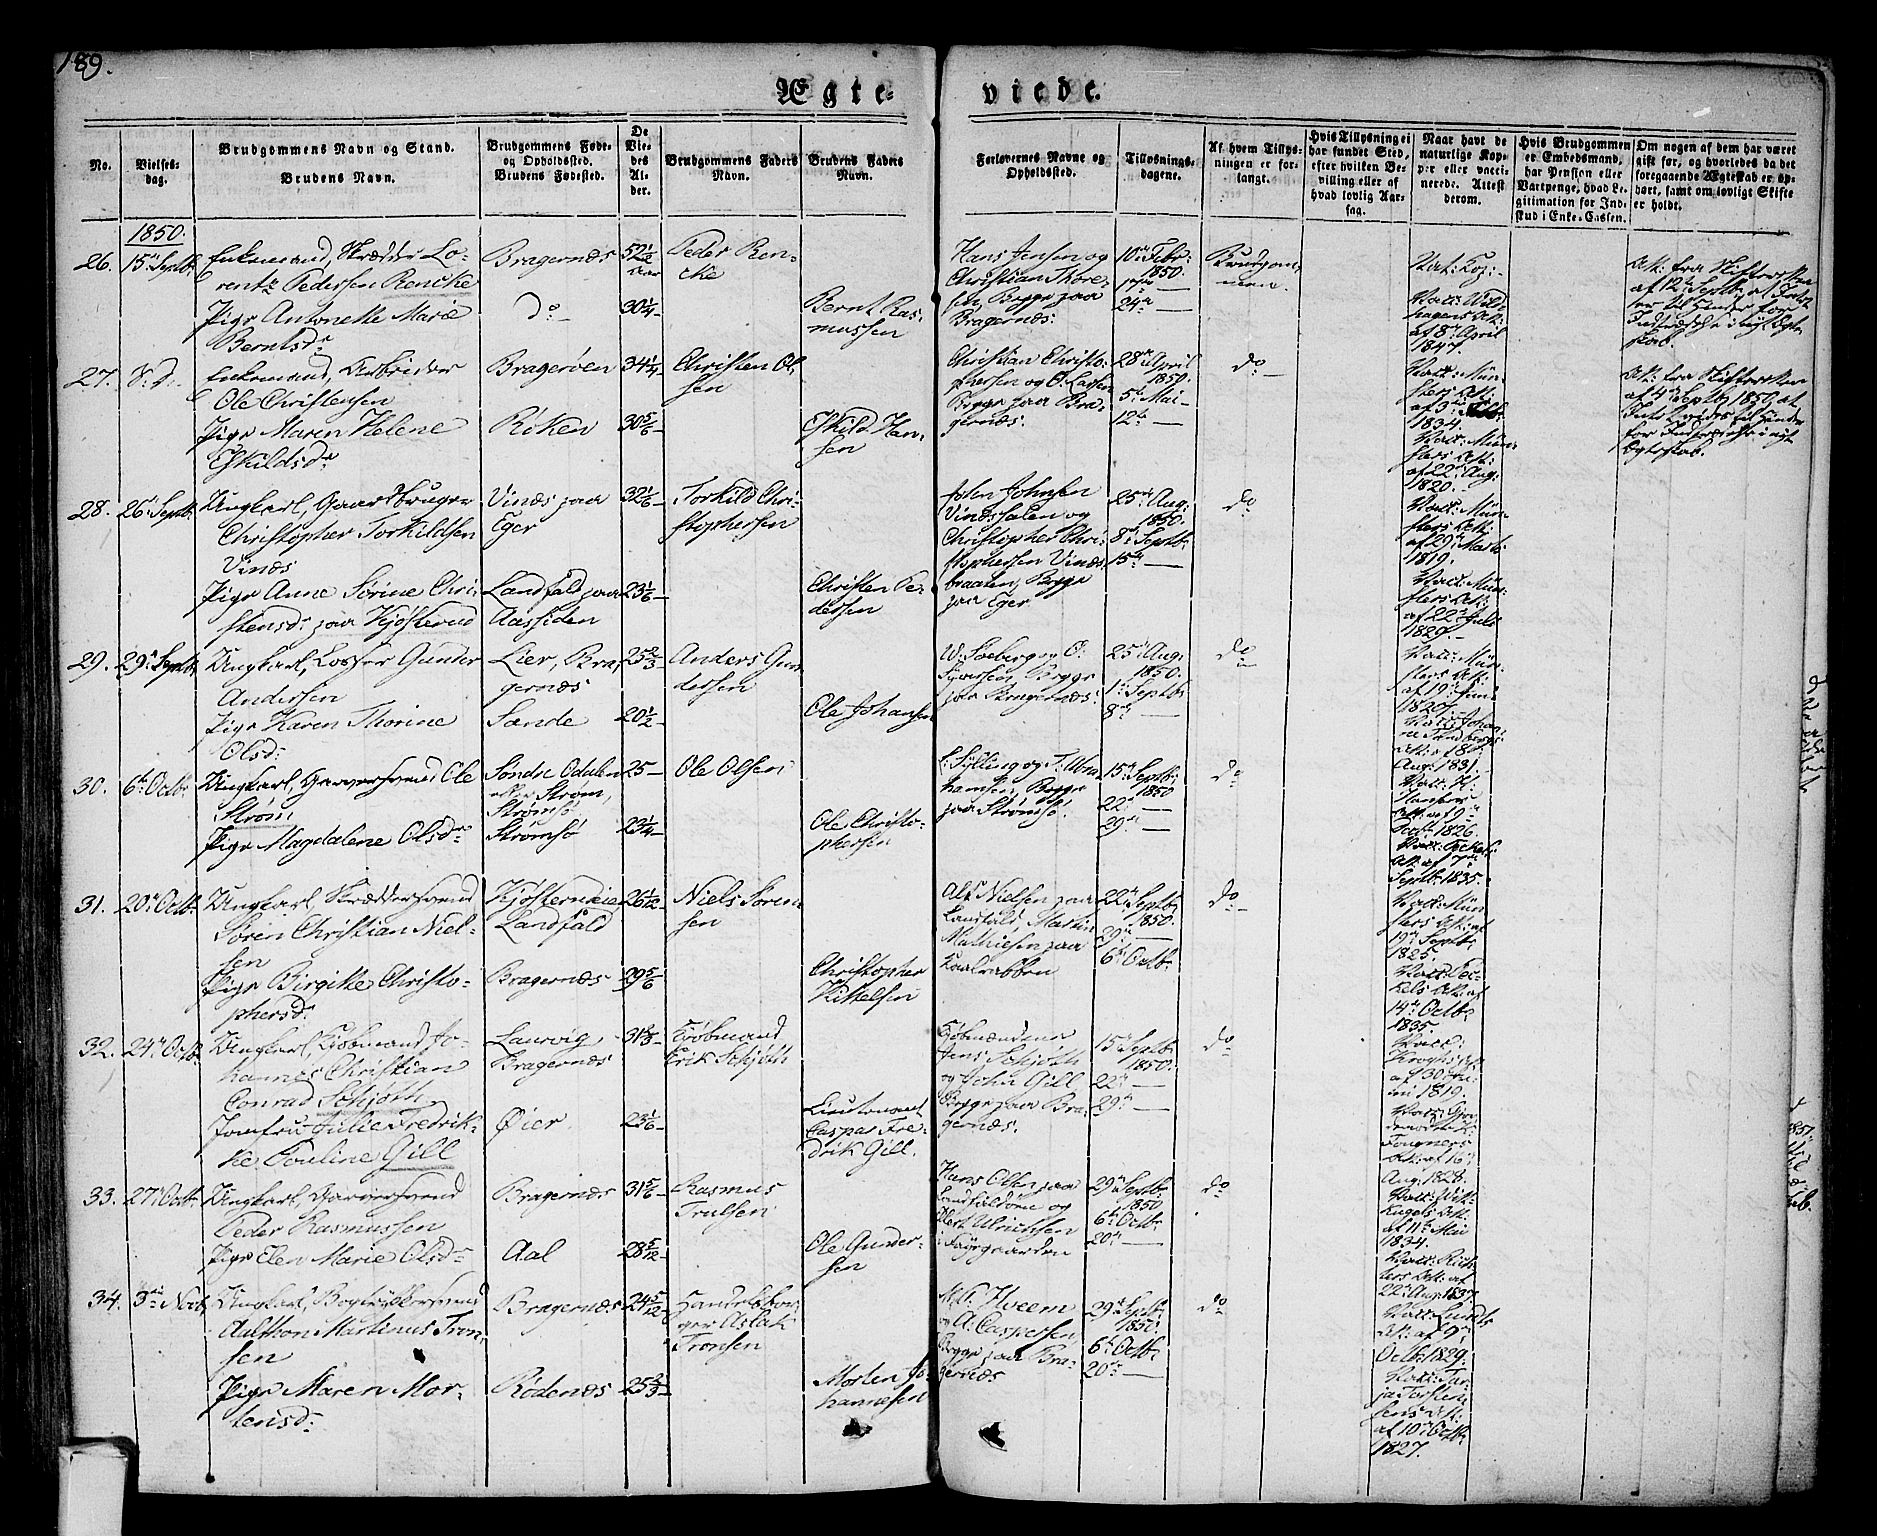 189.
Ægte-
viede.
No.
Vielses-
dag.
Brudgommens Navn og Stand.
Brudens Navn.
Brudgommens Føde-
og Opholdssted.
Brudens Fødested.
De
Vie-
des
Al-
der.
Brudgommens Faders
Navn.
Brudens Faders
Navn.
Forlovernes Navne og
Opholdssted.
Tillysnings-
dagene.
Af hvem Tillys-
ningen er for-
langt.
Hvis Tillysning ei
har fundet Sted,
efter hvilken Be-
villing eller af
hvad lovlig Aar-
sag.
Naar havt de
naturlige Kop-
per eller vacci-
nerede. Attest
derom.
Hvis Brudgommen
er Embedsmand,
har Pension eller
Vartpenge, hvad Le-
gitimation for Ind-
skud i Enke-Cassen.
Om nogen af dem har været
gift før, og hvorledes da det
foregaaende Ægteskab er op-
hørt, samt om lovligt Skifte
er holdt.
1850.
26.
15de Septbr
Enkemand, Skrædder Lo-
rentz Pedersen Rencke
Pige Antonette Marie
Berntsdr
Bragernæs
do
52½
Aar
30¼
Peder Ren-
cke
Bernt Ras-
mussen
Hans Jensen og
Christian Thore-
sen, Begge paa
Bragernæs.
10de Febr:
1850.
24de
Brudgom-
men.
Nat: Kop:
af 8de April
1847.
Att: fra Skifteretten
af 12te Septbr
27.
S: D.
Enkemand, Arbeider
Ole Christensen
Pige Maren Helene
Eskildsdr
Bragerøen
Røken
34¼
30 5/6
Christen Ol-
sen
Eskild Han-
sen
Christian Christo-
phersen og O. Larsen
Begge paa Bra-
gernæs.
28de April
1850.
5te Mai
12te
do
Vacc: Mün-
sters Att:
1834.
Vacc: Mün-
sters Att:
af 22de Aug:
1820.
Att: fra Skifteretten
af 4de Septbr 1850, at
Intet er til Hinder
for Indtrædelse i nyt
Ægteskab.
28.
26de Septbr
Ungkarl, Gaardbruger
Christopher Torkildsen
Vinæs
Pige Anne Sørine Chri-
stensdr paa Kjøsterud
Vinæs paa
Eger
Landfald paa
Aassiden
32 1/6
23 1/6
Torkild Chri-
stophersen
Christen Pe-
dersen
John Johnsen
Vinæssalen og
Christopher Chri-
stophersen Vinæs-
braaten, Begge
paa Eger
25de Aug:
1850.
8de Septbr
15de
do
Vacc: Mün-
sters Att:
af 29de Marts
1819.
Vacc: Mün-
sters Att:
af 22de Juli
1829.
29.
29de Septbr
Ungkarl, Losser Gunder
Andersen
Pige Karen Thorine
Olsdr
Lier, Bra-
gernæs
Sande
25⅔
20½
Anders Gun-
dersen
Ole Johansen
W. Soeberg og O.
Syversen, Begge
paa Bragernæs.
25de Aug:
1850.
1ste Septbr
8de
do
Vacc: Mün-
sters Att:
af 19de Juni
1820.
Vacc: Johan-
ne Sandbergs
Att: 18de
Aug: 1831.
30.
6te Octbr
Ungkarl, Garversvend Ole
Strøm
Pige Magdalene Olsdr
Søndre Odalen
eller Strøm,
Strømsø
Strømsø
25
23¼
Ole Olsen
Ole Christo-
phersen
E. Sylling og T. Abra-
hamsen, Begge
paa Strømsø.
15de Septbr
1850
22de
29de
do
Vacc: H.
Hansens
Att: af 9de
1826.
Vacc:
Att: af 7de
Septbr 1835.
31.
20de Octbr
Ungkarl, Skræddersvend
Søren Christian Niel-
sen
Pige Birgitte Christo-
phersdr
Landfald
Bragernæs
26 1/12
29 5/6
Niels Søren-
sen
Christopher
Kittelsen
Alf Nielsen paa
Landfald, Martin
Mathiesen paa
22de Septbr
1850.
29de
6te Octbr
do
Vacc: Mün-
sters Att: af
19de Septbr
1825.
Att: af
14de Octbr
1835.
32.
24de Octbr
Ungkarl, Kjøbmand Jo-
hannes Christian
Conrad Schjøth
Jomfru Julie Fredrik-
ke Pouline Gill
Laurvig
Bragernæs
Øier
31⅔
23 1/6
Kjøbmand
Erik Schjøth
Lieutenant
Caspar Fre-
drik Gill.
Kjøbmændene
Jens Schjøth
og John Gill,
Begge paa Bra-
gernæs.
15de Septbr
1850.
22de
29de
do
Vacc:
af 30 Ju-
ni 1819.
Att: af 16de
Aug: 1828.
33.
27de Octbr
Ungkarl, Garversvend
Peder Rasmussen
Pige Elen Marie Olsdr
Bragernæs
Aal
31 5/6
28 5/12
Rasmus
Trulsen
Ole Gunder-
sen
Hans Olsen paa
Landfaldøen og
Ulrichsen
i Færgegaarden
29de Septbr
1850
6te Octbr
20de
do
Vacc:
af 11te Mai
1834.
Att: af
22de Aug: 1837.
34.
3die Novbr
Ungkarl, Bogtrykkersvend
Aulthon Martinus Tron-
sen
Pige Maren Mor-
tensdr
Bragernæs
Rødenæs
24 5/12
25⅔
Handelsbor-
ger Aslak
Tronsen
Morten Jo-
hannesen
M. Hveem
og A. Caspersen,
Begge paa Bra-
gernæs
29de Septbr
1850.
6te Octbr
20de
do
Vacc: Lunds
Att: af 9de
Octbr 1829.
Vacc: Tar-
ja Torsten-
sens Att:
af 10de Octbr
1827.